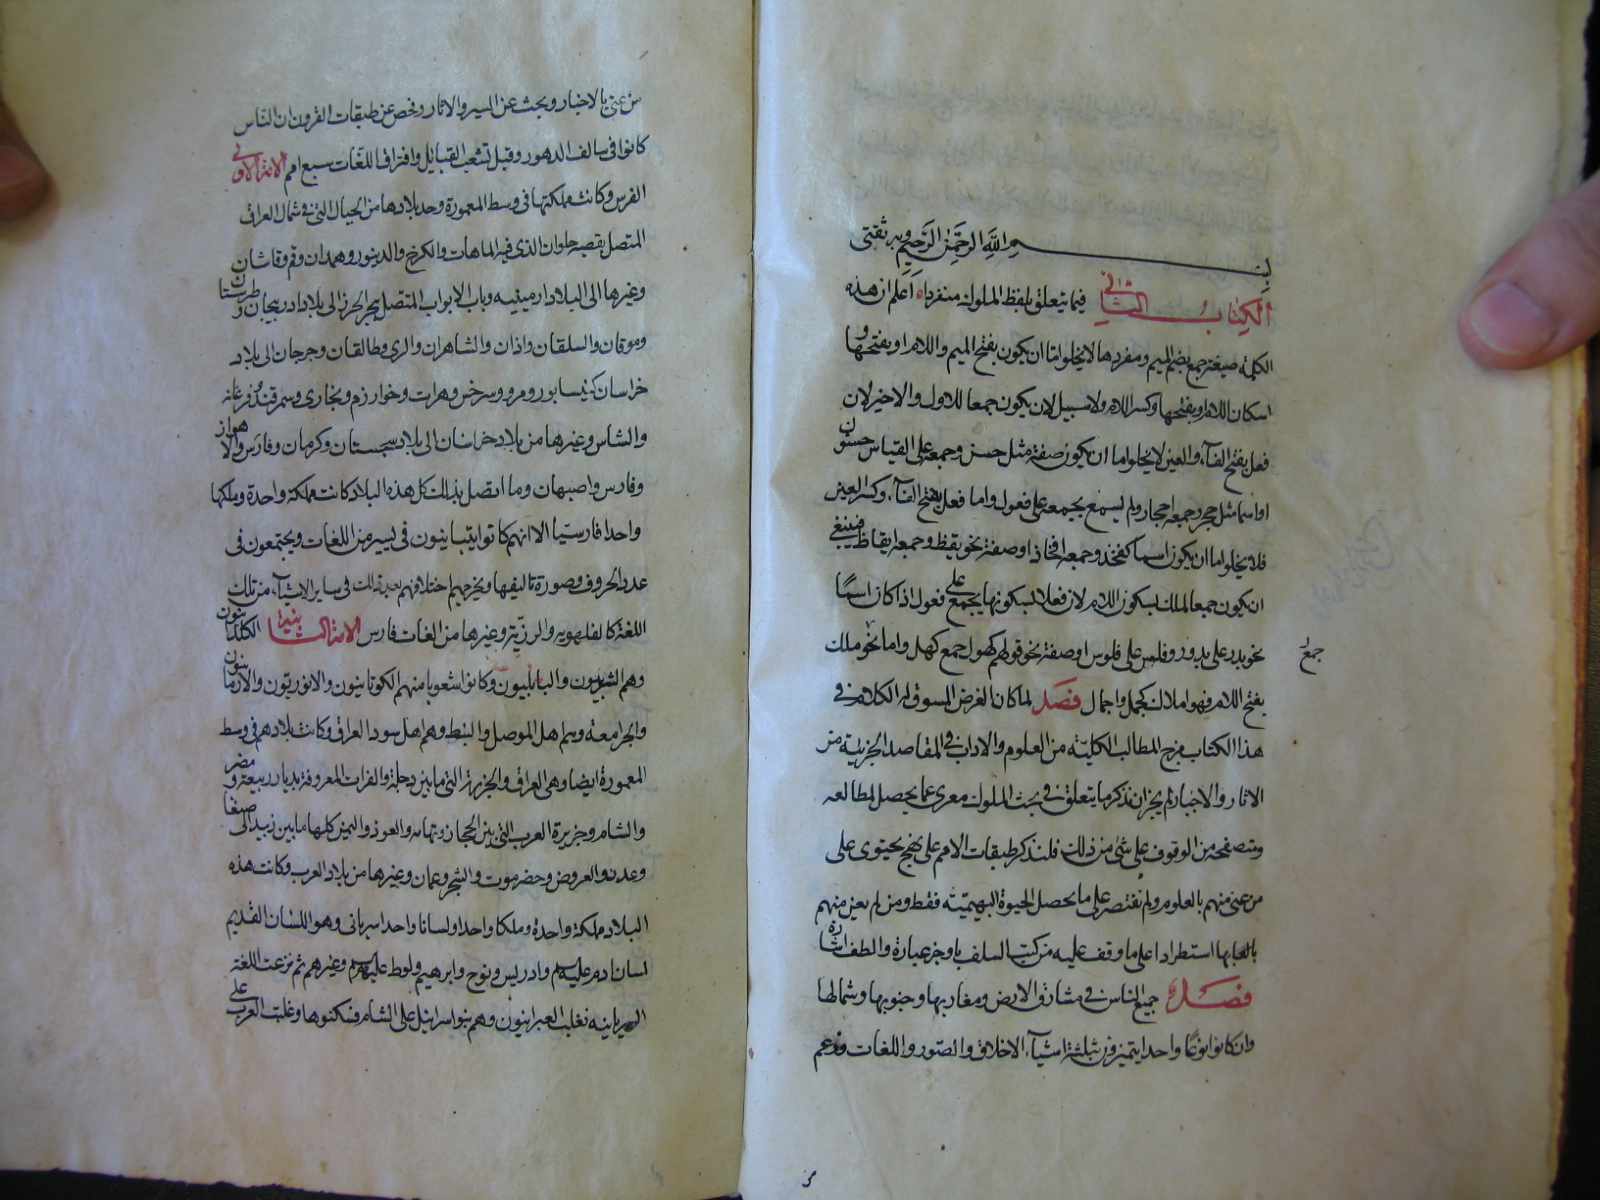 بسم الله الرحمن الرحيم وبه ثقتى
الكتاب الثانى فيما يتعلق بلفظ الملوك منفردا اعلم ان هذه
الكلمة صيغة جمع بضم الميم ومفردها لا يخلوا ما ان يكون بفتح الميم واللام او بفتحها و
اسكان اللام او بفتحها وكسر اللام ولا سبيل لان يكون جمعا للاول والاخير لان
فعل بفتح الفآء والعين لا يخلوا ما ان يكون صفة مثل حسن وجمعه على القياس حسنون
او اسما مثل حجر وجمعه احجار ولم يسمع بجمعه على فعول واما فعل بفتح الفآء وكسر العين
فلا يخلوا ما ان يكون اسما كفخذ وجمعه افخاذ او صفة نحو يقظ وجمعه ايقاظ فينبغى
ان يكون جمعا لملك بسكون اللام لان فعلا بسكونها يجمع على فعول اذا كان اسمًا
نحو بدر على بدور وفلس على فلوس او صفة نحو قولهم كهول جمع كهل واما نحو ملك
جمع
بفتح اللام فهو املاك كجمل واجمال فصل لما كان الغرض المسوق له الكلام فى
هذا الكتاب مزج المطالب الكلية من العلوم والاداب فى المقاصد الجزيية من
الاثار والاخبار لم يجز ان نذكر ما يتعلق فى بحث الملوك معرى عما يحصل لمطالعه
ومتصفحه من الوقوف على شئ من ذلك فلنذكر طبقات الامم على نهج يحتوى على
من عنى منهم بالعلوم ولم نقتصر على ما يحصل الحيوة البهيمية فقط ومن لم يعن منهم
بالعنا بها استطرادا على ما وقف عليه من كتب السلف باوجز عبارة والطف اشارة
فصل جميع الناس فى مشارق الارض ومغاربها وجنوبها وشمالها
وان كانوا نوعًا واحدا يتميزون بثلثة اشيآء الاخلاق والصور واللغات وزعم
من عنى بالاخبار وبحث عن السير والاثار وفحص عن طبقات القرون ان الناس
كانوا فى سالف الدهور وقبل تشعب القبايل وافتراق اللغات سبع امم الامة الاولى
الفرس وكانت مملكتها فى وسط المعمورة وحد بلادها من الجبال التى فى شمال العراق
المتصل بقصبه حلوان الذى فيه الماهات والكرخ والدينور وهمدان وقم وقاشان
وغيرها الى البلاد ارمينيه وباب الابواب المتصل ببحر الخرز الى بلاد ادربيجان وطبرستان
وموقان والسلقان واذان والشاهران والرى وطالقان وجرجان الى بلاد
خراسان كنيسابور ومرو وسرخس وهرات وخوارزم وبخارى وسمرقند وفرغانه
والشاس وغيرها من بلاد خراسان الى بلاد سجستان وكرمان وفارس والاهواز
وفارس واصبهان وما اتصل بذلك كل هذه البلاد كانت مملكة واحدة وملكها
واحدا فارسيًا الا انهم كانوا يتباينون فى يسير من اللغات ويجتمعون فى
عدد الحروف وصورة تاليفها ويخرجهم اختلافهم بعد ذلك فى ساير الاشيآء من تلك
اللغة كالفلهويه والدرّية وغيرها من الغات فارس الامة الثانية الكلدانيون
وهم السريانيون والبابليون وكانوا شعوبا منهم الكوثابنون والاثوريون والارمانيون
والجرامعة وهم اهل الموصل والنبط وهم اهل سود العراق وكانت بلادهم فى وسط
المعمورة ايضا وهى العراق والجزيرة التى ما بين دجلة والفرات المعروفة بديار ربيعة ومضر
والشام وجزيرة العرب التى بين الحجاز وتهامه والعوذ واليمن كلها ما بين زبيد الى صنعا
وعدن والعروض وحضرموت والشحر وعمان وغيرها من بلاد العرب وكانت هذه
البلاد مملكة واحدة وملكا واحدا ولسانا واحدا سريانى وهو اللسان القديم
لسان ادم عليه م وادريس ونوح وابرهيم ولوط عليهم م وغيرهم ثم نزعت اللغة
السريانيه فغلب العبرانيون وهم بنو اسرائيل على الشام فسكنوها وغلبت العرب على